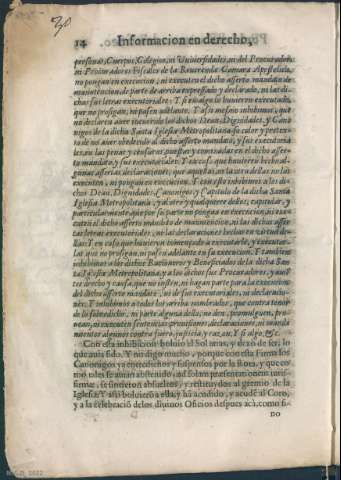 14 Informacion en derecho,
personas, Cuerpos, Colegios, ni Vniuersidades, ni del Procurador,
ni Procuradores Fiscales de la Reuerenda Camara Apostolica,
no pongan en execucion, ni executen el dicho asserto mandato de
manutencion, de parte de arriba expressado y declarado, ni las di-
chas sus letras executoriales: Y si en algo lo huuieren executado,
que no prosigan, ni passen adelante. Y assi mesmo inhibimos, que
no declaren auer incurrido los dichos Dean, Dignidades, y Cano
nigos de la dicha Santa Iglesia Metropolitana so color y pretex-
to de no auer obedecido al dicho asserto mandato, y sus executoria
les, en las penas y censuras puestas y contenidas en el dicho asser-
to mandato, y sus executoriales: Y en caso que huuieren hecho al-
gunas assertas declaraciones; que aquellas, ni la otra dellas no las
executen, ni pongan en execucion. Y con esto inhibimos a los di-
chos Dean, Dignidades, Canonigos y Capitulo de la dicha Santa
Iglesia Metropolitana, y a los otros y qualquiere dellos, capitular, y
particularmente, que por si parte no pongan en execucion, ni exe-
cuten el dicho asserto mandato de manutencion, ni las dichas asser-
tas letras executoriales, ni las declaraciones hechas en virtud de-
llas: Y en caso que huuieren començado a executarle, y executar-
las, que no prosigan, ni passen adelante en su execucion. Y tambien
inhibimos a los dichos Racioneros y Beneficiados de la dicha San-
ta Iglesia Metropolitana, y a los dichos sus Procuradores, y a
tro derecho y causa, que no insten, ni hagan parte para la execucion
del dicho asserto mandato, ni de sus executoriales, ni declaracio-
nes. Y inhibimos a todos los arriba nombrados, que contra tenor
de lo sobredicho, ni parte alguna dello, no den, promulguen, pro-
nuncien, ni executen sentencias, prouisiones, declaraciones, ni manda
mientos algunos contra fuero, justicia y razon. Y si algo, &c.
Con esta inhibicion boluio el Sol a mas, y dexò de ser, lo
que auia sido. Y no digo mucho, porque con esta Firma los
Canonigos ya entredichos y suspensos por la Rota, y que co-
mo tales se auian abstenido, ad solam presentationem iuris-
firmæ, se sintieron absueltos, y restituydos al gremio de la
Iglesia: Y assi boluieron a ella, y han acudido, y acudẽ al Coro,
y a la celebraciõ de los diuinos Oficios despues acà, como si
no